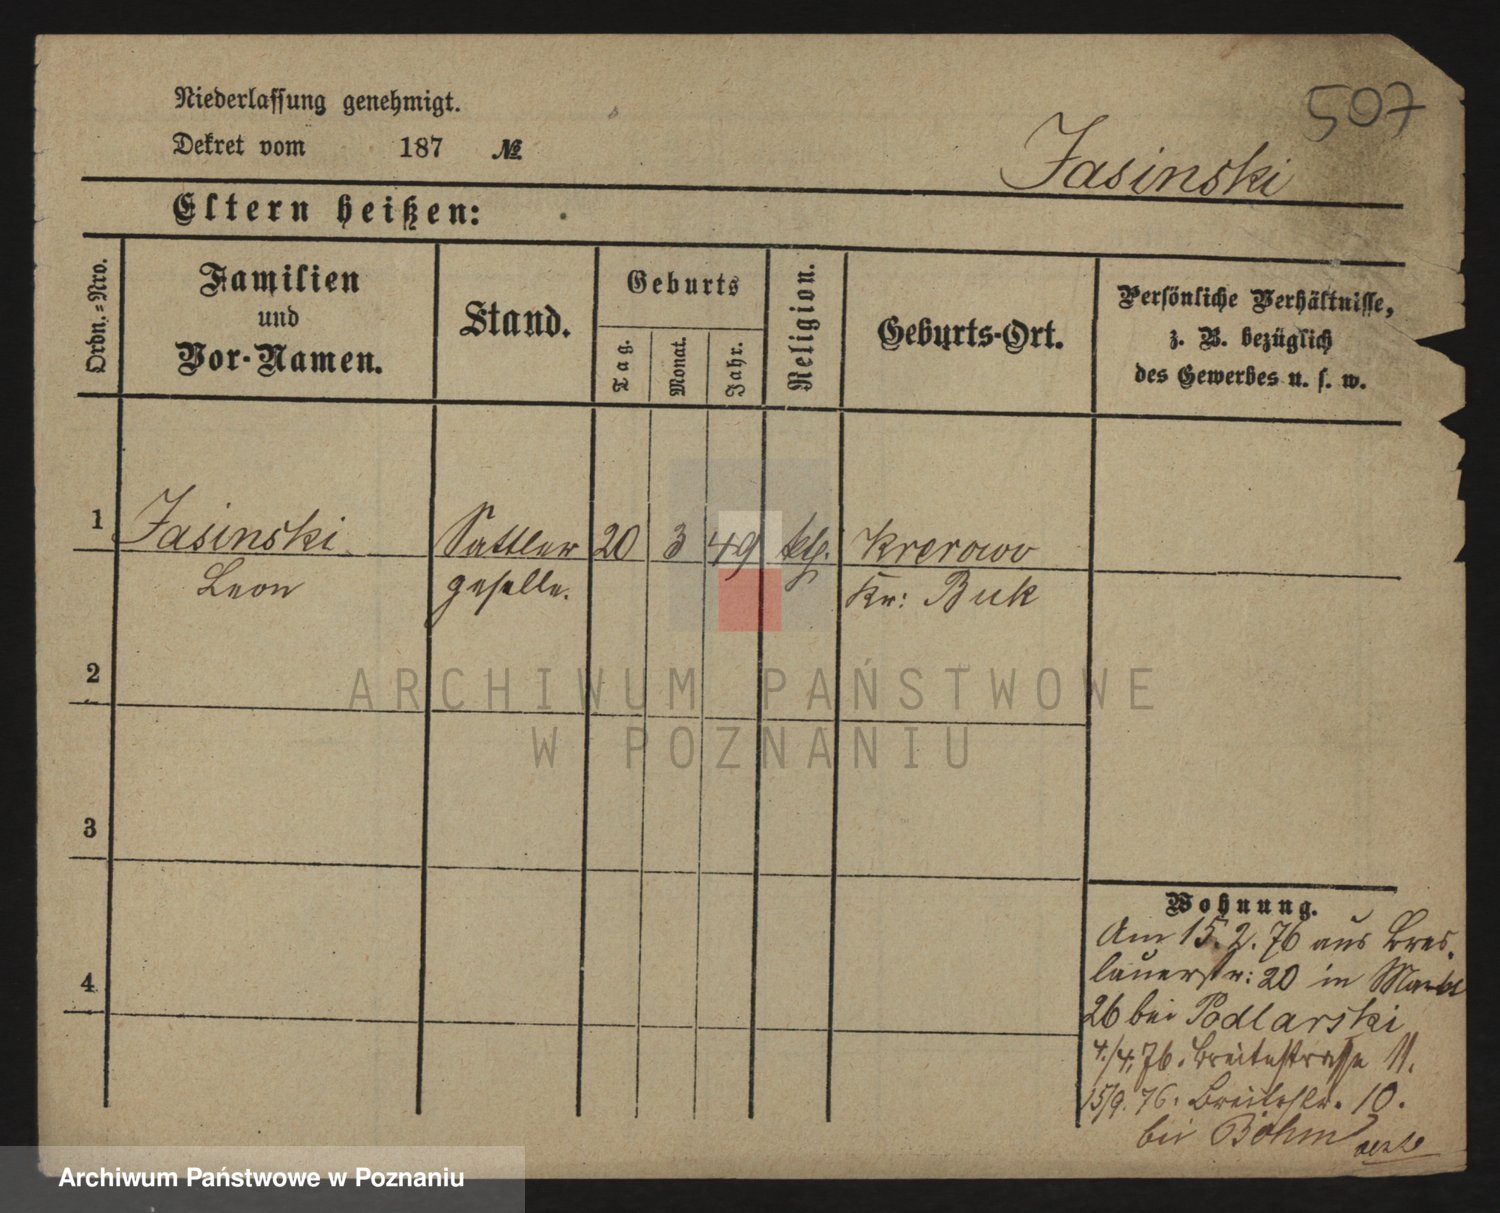 507
Niederlassung genehmigt.
Dekret vom 187 №
Jasinski
Eltern heißen:
Ordn.-Nro.
Familien
und
Vor-Namen.
Stand.
Geburts
Tag.
Monat.
Jahr.
Religion.
Geburts-Ort.
Persönliche Verhältnisse,
z. B. bezüglich
des Gewerbes u. s. w.
1 Jasinski Sattler 20 3 49 ktl. Krerowo
Leon geselle. Kr: Buk
2
3
4
Wohnung.
Am 15.2.76 aus Bres-
lauerstr: 20 in Markt
26 bei Podlarski
4./4.76. Breitestrasse 11.
15/9. 76. Breitestr. 10.
bei Böhm
ARCHIWUM PAŃSTWOWE
W POZNANIU
Archiwum Państwowe w Poznaniu